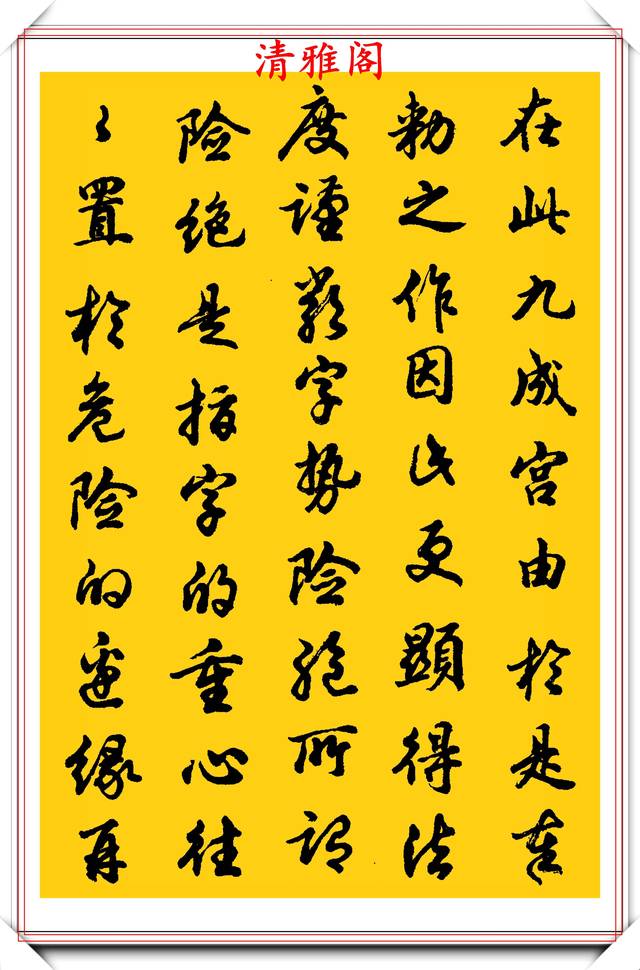 清雅阁
在此九成宫由於是奉
勅之作因此更顯得法
度谨嚴字势险绝所谓
险绝是指字的重心往
々置於危险的邊缘再